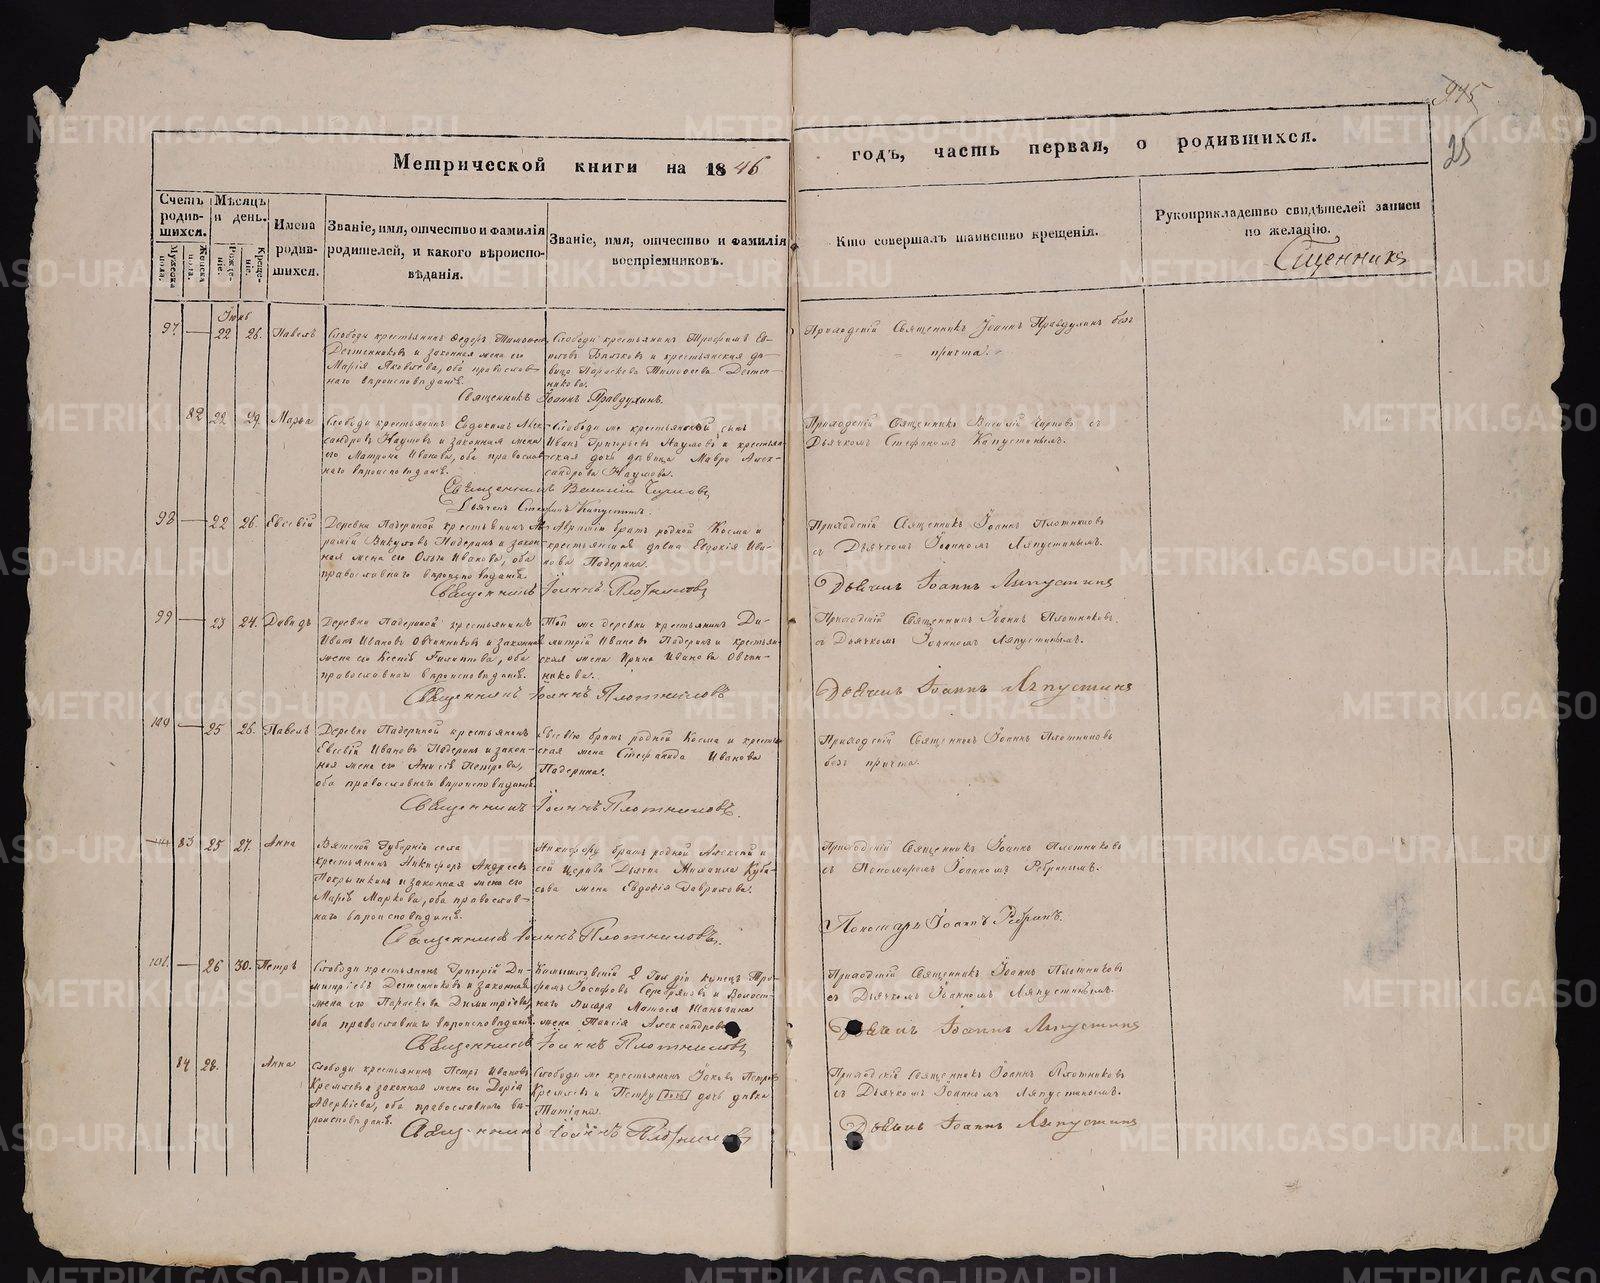 975
25
Метрической книги на 1846
годъ, часть первая, о родившихся.
Счетъ родив-шихся.
Мужеска пола.
Женска пола.
Мѣсяцъ и день.
Рожде-ніе.
Креще-ніе.
Имена родив-шихся.
Званіе, имя, отчество и фамилія
родителей, и какого вѣроиспо-
вѣданія.
Званіе, имя, отчество и фамилія
воспріемниковъ.
Кто совершалъ таинство крещенія.
Рукоприкладство свидѣтелей записи
по желанію.
97. — 22 26. Павелъ
Слободы крестьянинъ Ѳедоръ
и законная жена его
Марія Яковлева, оба православ-
наго вѣроисповѣданія.
Слободы крестьянинъ Трофимъ
и крестьянская дѣ-
вица Параскева Тимоѳеева
Приходскій Священникъ Іоаннъ Правдухинъ безъ
причта.
Священникъ Іоаннъ Правдухинъ.
82 22 29. Марѳа
Слободы крестьянинъ Евдокимъ Алек-
сандровъ Наумовъ и законная жена
его Матрона Иванова, оба православ-
наго вѣроисповѣданія.
Слободы же крестьянской сынъ
Иванъ Григорьевъ Наумовъ и крестьян-
ская дочь дѣвица Мавра Алек-
сандрова Наумова.
Приходскій Священникъ Василій
Дьячкомъ Стефаномъ Капустинымъ.
Священникъ Василій
Дьячекъ Стефанъ Капустинъ.
98 — 22 26. Евсевій
Деревни Падериной крестьянинъ Ав-
рамій Викуловъ Падеринъ и закон-
ная жена его Ольга Иванова, оба
православнаго вѣроисповѣданія.
Аврамію братъ родной Косма и
крестьянская дѣвка Евдокія Ива-
нова Падерина.
Приходскій Священникъ Іоаннъ Плотниковъ
съ Дьячкомъ Іоанномъ Ляпустинымъ.
Священникъ Іоаннъ Плотниковъ
Дьячекъ Іоаннъ Ляпустинъ
99 — 23 24. Давидъ
Деревни Падериной крестьянинъ
Иванъ Ивановъ Овчинниковъ и законная
жена его Ксенія Филиппова, оба
православнаго вѣроисповѣданія.
Той же деревни крестьянинъ Ди-
митрій Ивановъ Падеринъ и крестьян-
ская жена Ирина Иванова Овчин-
никова.
Приходскій Священникъ Іоаннъ Плотниковъ
съ Дьячкомъ Іоанномъ Ляпустинымъ.
Священникъ Іоаннъ Плотниковъ
Дьячекъ Іоаннъ Ляпустинъ
100 — 25 26. Павелъ
Деревни Падериной крестьянинъ
Евсевій Ивановъ Падеринъ и закон-
ная жена его Анисія Петрова,
оба православнаго вѣроисповѣданія.
Евсевію братъ родной Косма и крестьян-
ская жена Стефанида Иванова
Падерина.
Приходскій Священникъ Іоаннъ Плотниковъ
безъ причта.
Священникъ Іоаннъ Плотниковъ.
83 25 27. Анна
Вятской Губерніи села
крестьянинъ Никифоръ Андреевъ
и законная жена его
Марія Маркова, оба православ-
наго вѣроисповѣданія.
Никифору братъ родной Алексій и
сей Церкви Дьячка Михаила
жена Евдокія Гаврилова.
Приходскій Священникъ Іоаннъ Плотниковъ
съ Пономаремъ Іоанномъ Ребринымъ.
Священникъ Іоаннъ Плотниковъ.
Пономарь Іоаннъ Ребринъ.
101. — 26 30. Петръ
Слободы крестьянинъ Григорій Ди-
митріевъ и законная
жена его Параскева Димитріева,
оба православнаго вѣроисповѣданія.
Камышловскій 2 Гильдіи купецъ Тро-
фимъ Іосифовъ Серебряковъ и Волост-
наго Писаря
жена Таисія Александрова
Приходскій Священникъ Іоаннъ Плотниковъ
съ Дьячкомъ Іоанномъ Ляпустинымъ.
Священникъ Іоаннъ Плотниковъ
Дьячекъ Іоаннъ Ляпустинъ
84 28. Анна
Слободы крестьянинъ Петръ Ивановъ
Кремлевъ и законная жена его Дарія
Аверкіева, оба православнаго вѣ-
роисповѣданія.
Слободы же крестьянинъ Іаковъ Петровъ
Кремлевъ и Петру дочь дѣвка
Татіана.
Приходскій Священникъ Іоаннъ Плотниковъ
съ Дьячкомъ Іоанномъ Ляпустинымъ.
Священникъ Іоаннъ Плотниковъ
Дьячекъ Іоаннъ Ляпустинъ
METRIKI.GASO-URAL.RU